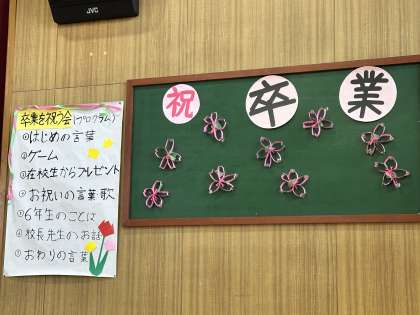 JVC
卒業を祝う会(プログラム)
①はじめの言葉
②ゲーム
③在校生からプレゼント
④お祝いの言葉 歌
⑤6年生のことば
⑥校長先生のお話
⑦おわりの言葉
祝 卒業